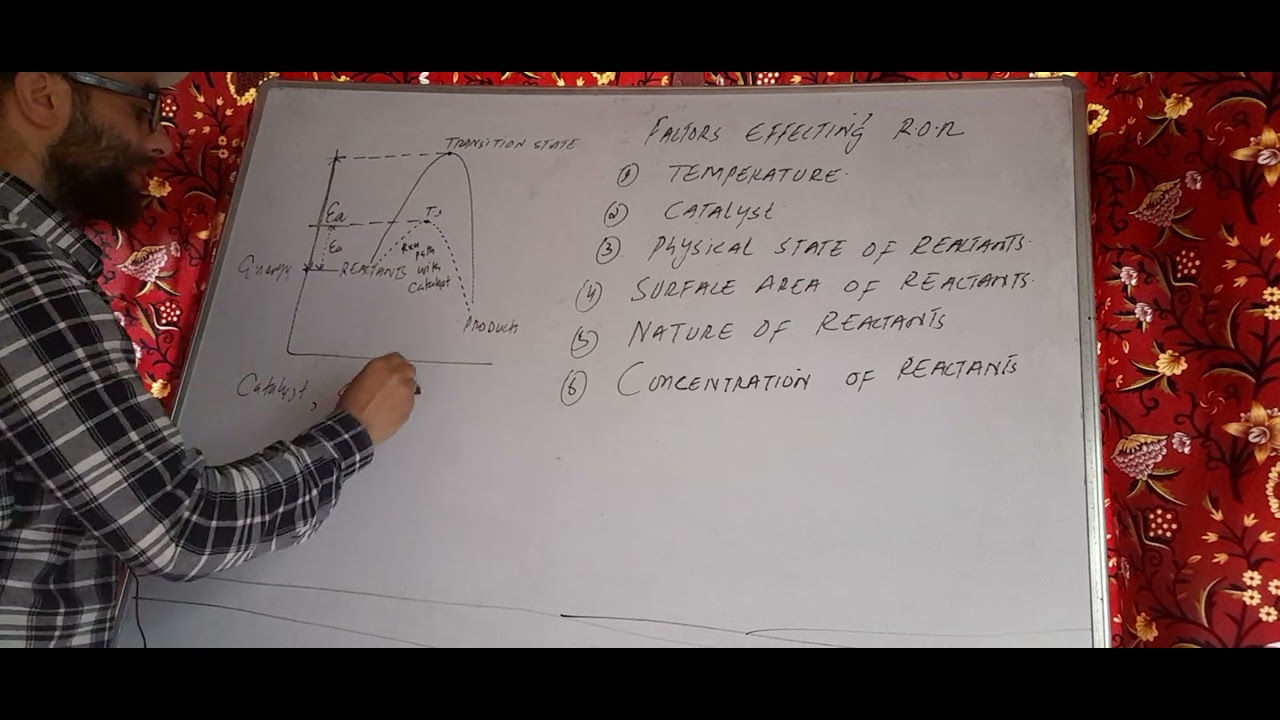 TRANSITION STATE
Ea
TS
Ea
Energy
REACTANTS
Rxn
path
with
Catalyst
PRODUCTS
Catalyst,
FACTORS EFFECTING R.O.R
① TEMPERATURE.
② CATALYST.
③ PHYSICAL STATE OF REACTANTS.
④ SURFACE AREA OF REACTANTS.
⑤ NATURE OF REACTANTS
⑥ CONCENTRATION OF REACTANTS